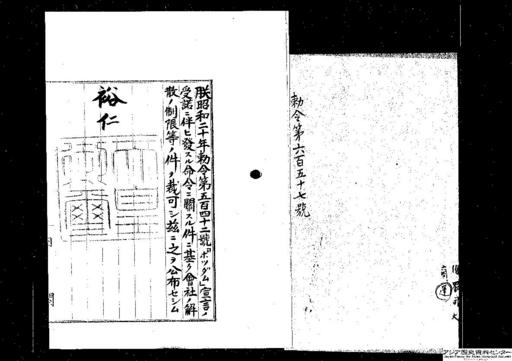 勅令第六百五十七號
朕昭和二十年勅令第五百四十二號「ポツダム」宣言ノ
受諾ニ伴ヒ發スル命令ニ關スル件ニ基ク會社ノ解
散ノ制限等ノ件ヲ裁可シ茲ニ之ヲ公布セシム
裕仁
アジア歴史資料センター